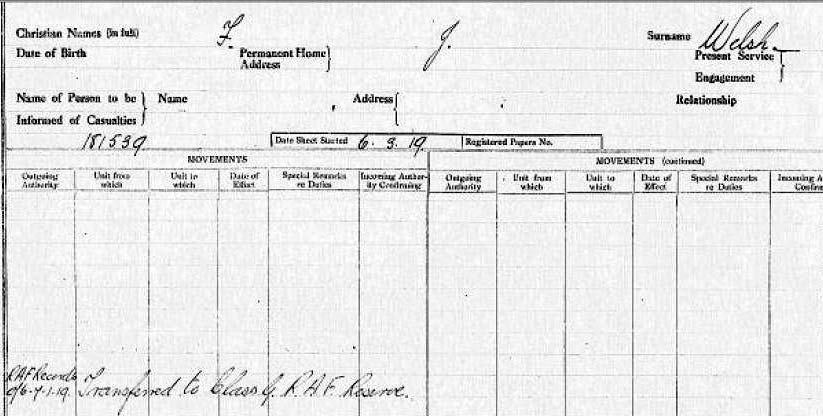 Christian Names (in full) F. J. Surname Welsh
Date of Birth Permanent Home Address Present Service
Engagement
Name of Person to be Informed of Casualties Name Address Relationship
181539 Date Sheet Started 6.3.19. Registered Papers No.
MOVEMENTS MOVEMENTS (continued)
Outgoing Authority Unit from which Unit to which Date of Effect Special Remarks re Duties Incoming Authority Confirming Outgoing Authority Unit from which Unit to which Date of Effect Special Remarks re Duties Incoming A
RAF Records
Transferred to Class G. R.A.F. Reserve.